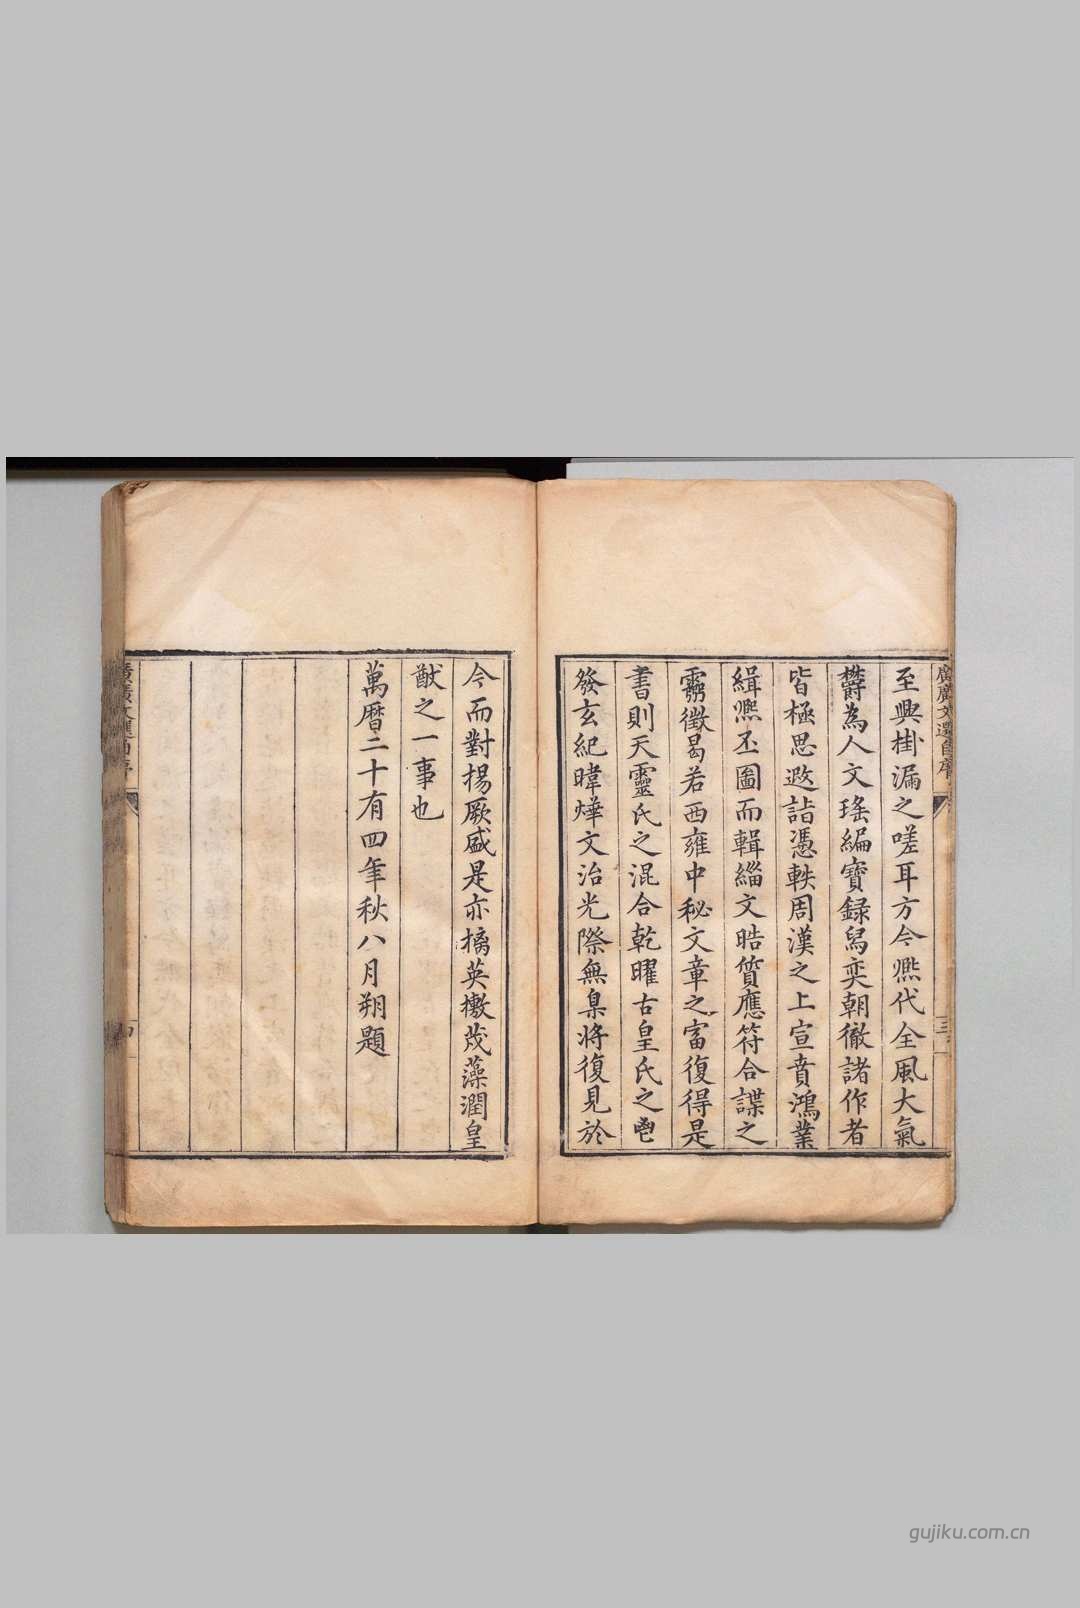 廣廣文選自序
三
至興掛漏之嗟耳方今熈代全風大氣
欝為人文瑤編寶録舄奕朝徹諸作者
皆極思遐詣憑軼周漢之上宣賁鴻業
緝熈丕圖而輯緇文晧質應符合諜之
霛徴曷若西雍中秘文章之富復得是
書則天靈氏之混合乾曜古皇氏之
發玄紀暐燁文治光際無臬將復見於
今而對揚厥盛是亦摛英擻茂藻潤皇
猷之一事也
萬曆二十有四年秋八月朔題
廣廣文選自序
四
gujiku.com.cn